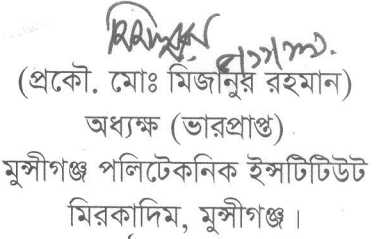 (প্রকৌ. মোঃ মিজানুর রহমান)
অধ্যক্ষ (ভারপ্রাপ্ত)
মুন্সীগঞ্জ পলিটেকনিক ইন্সটিটিউট
মিরকাদিম, মুন্সীগঞ্জ।